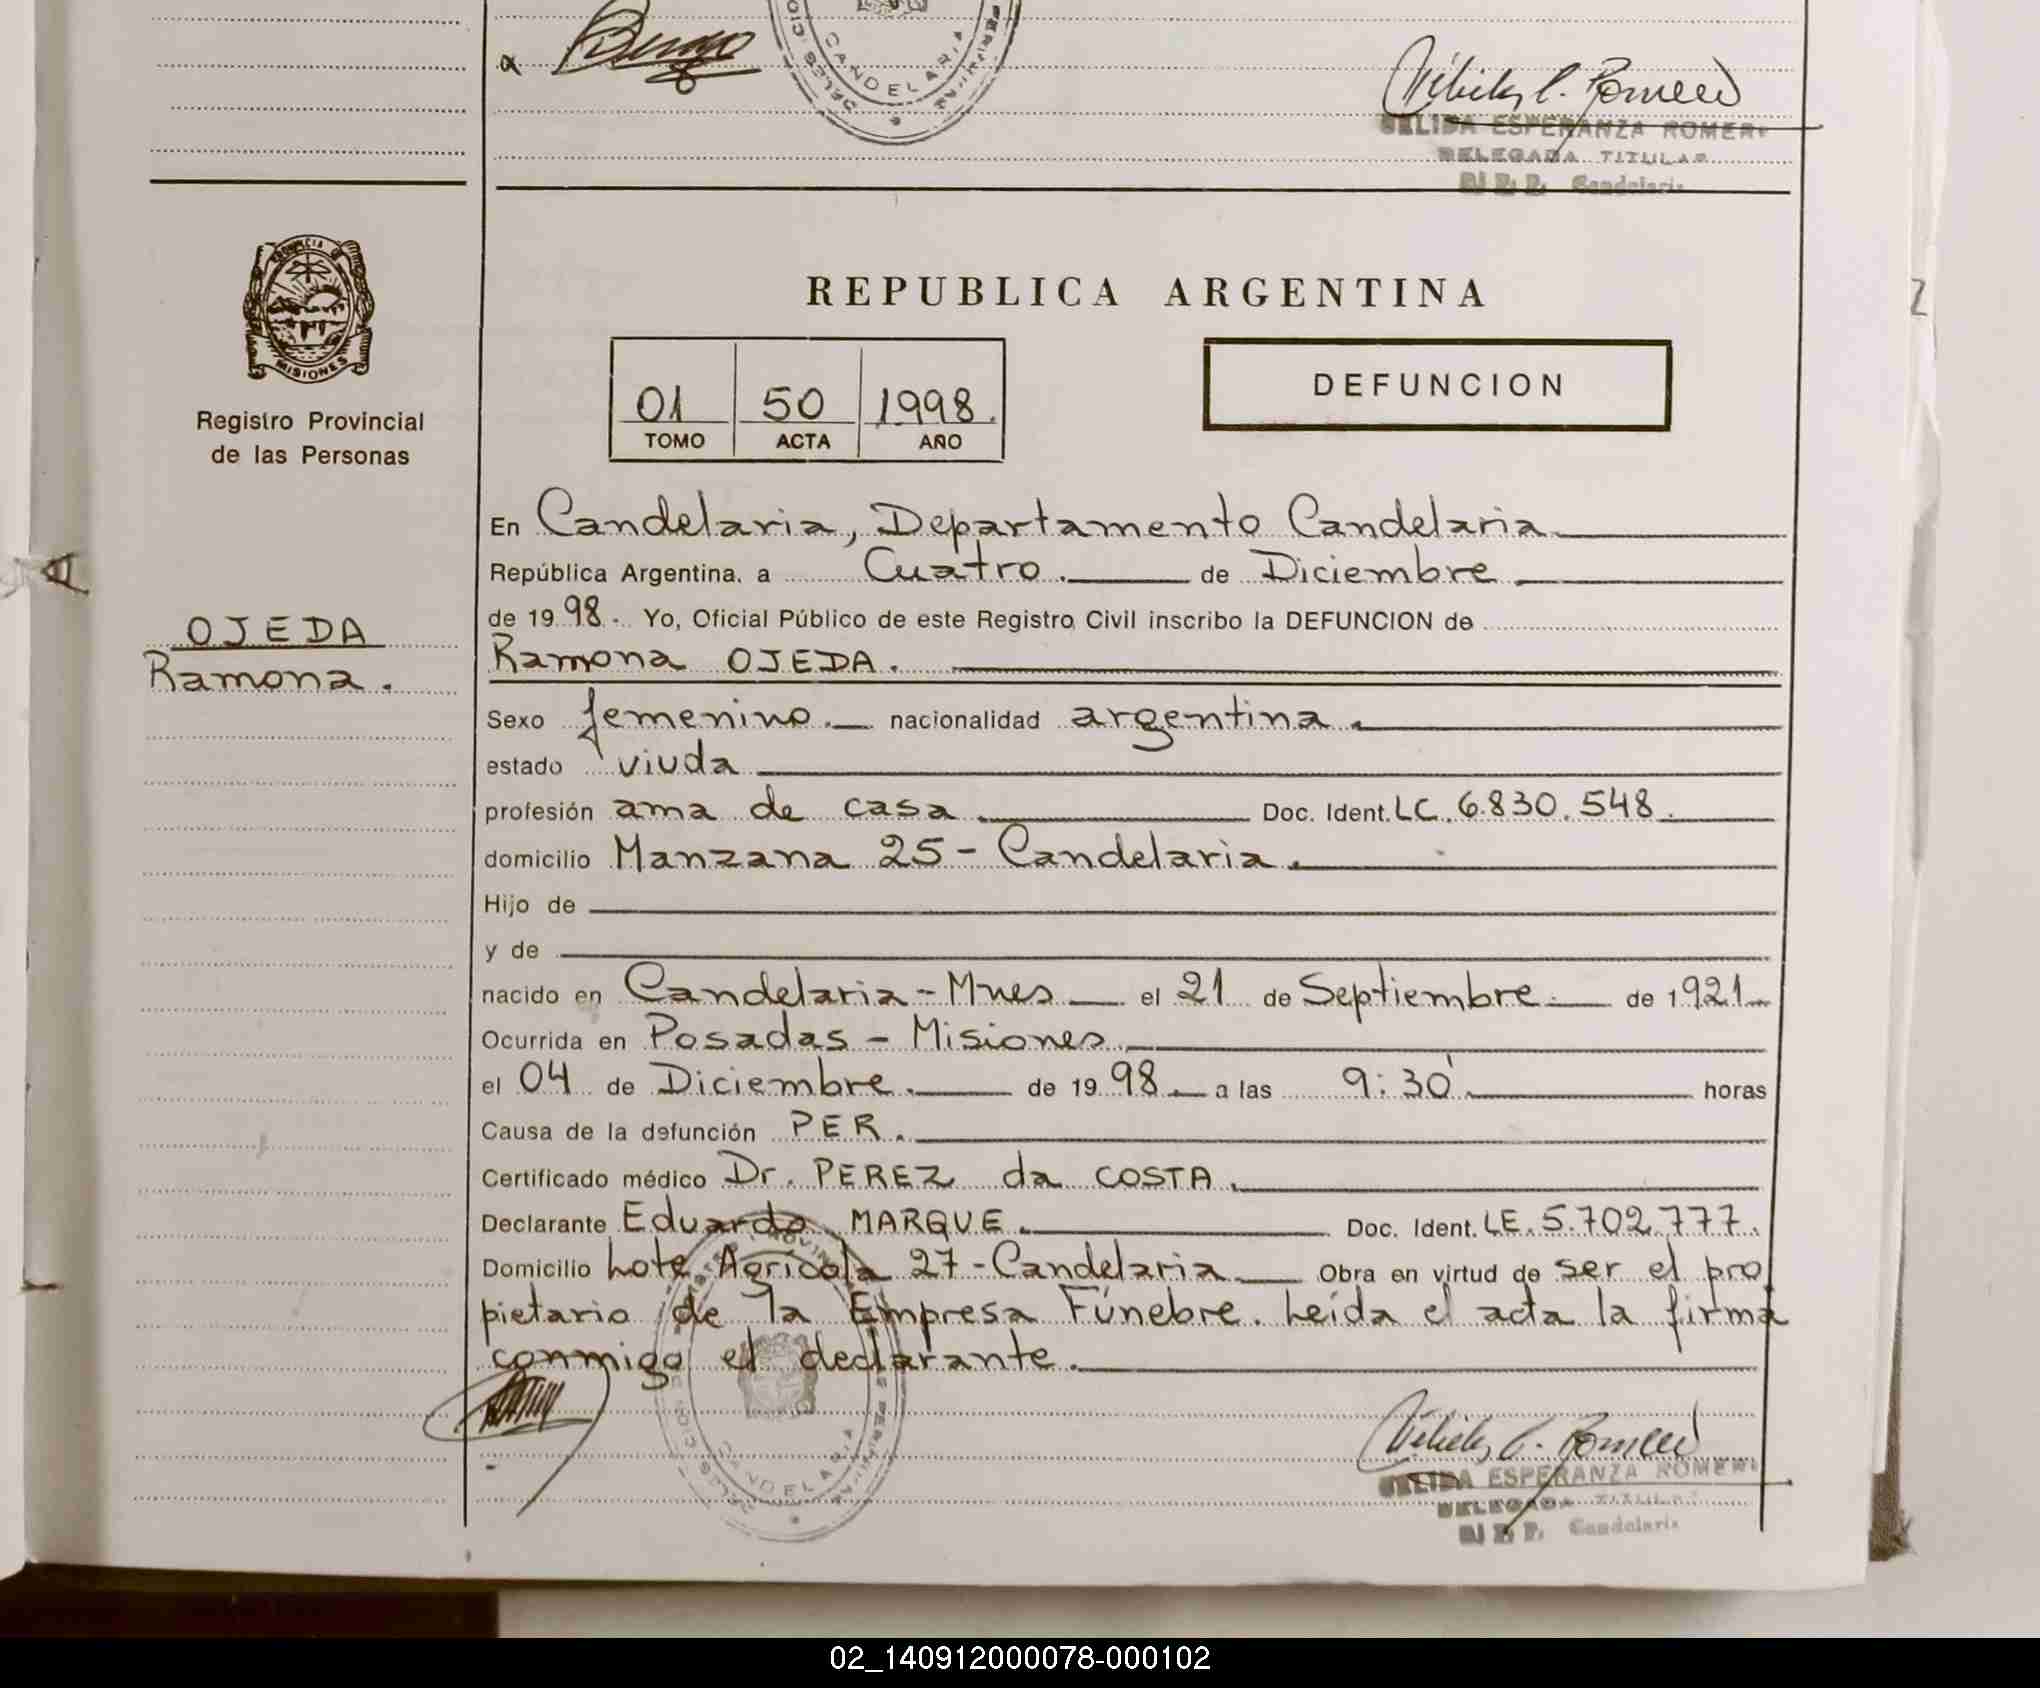 CANDELARIA
ESPERANZA ROMER
DELEGADA TITULAR
Candelaria
PROVINCIA DE
MISIONES
Registro Provincial
de las Personas
REPUBLICA ARGENTINA
01 50 1998.
TOMO ACTA AÑO
DEFUNCION
En Candelaria, Departamento Candelaria
República Argentina. a Cuatro. de Diciembre
de 1998. Yo, Oficial Público de este Registro Civil inscribo la DEFUNCION de
OJEDA
Ramona.
Ramona OJEDA.
Sexo femenino. nacionalidad argentina.
estado viuda
profesión ama de casa. Doc. Ident. LC. 6.830.548.
domicilio Manzana 25 - Candelaria.
Hijo de
y de
nacido en Candelaria - Mnes el 21 de Septiembre. de 1921
Ocurrida en Posadas - Misiones.
el 04 de Diciembre. de 1998 a las 9:30' horas
Causa de la defunción PER.
Certificado médico Dr. PEREZ da COSTA.
Declarante Eduardo MARQUE. Doc. Ident. LE. 5.702.777.
Domicilio Lote Agrícola 27 - Candelaria Obra en virtud de ser el pro
pietario de la Empresa Fúnebre. Leída el acta la firma
conmigo el declarante.
CANDELARIA
ESPERANZA ROMER
DELEGADA TITULAR
Candelaria
02_140912000078-000102